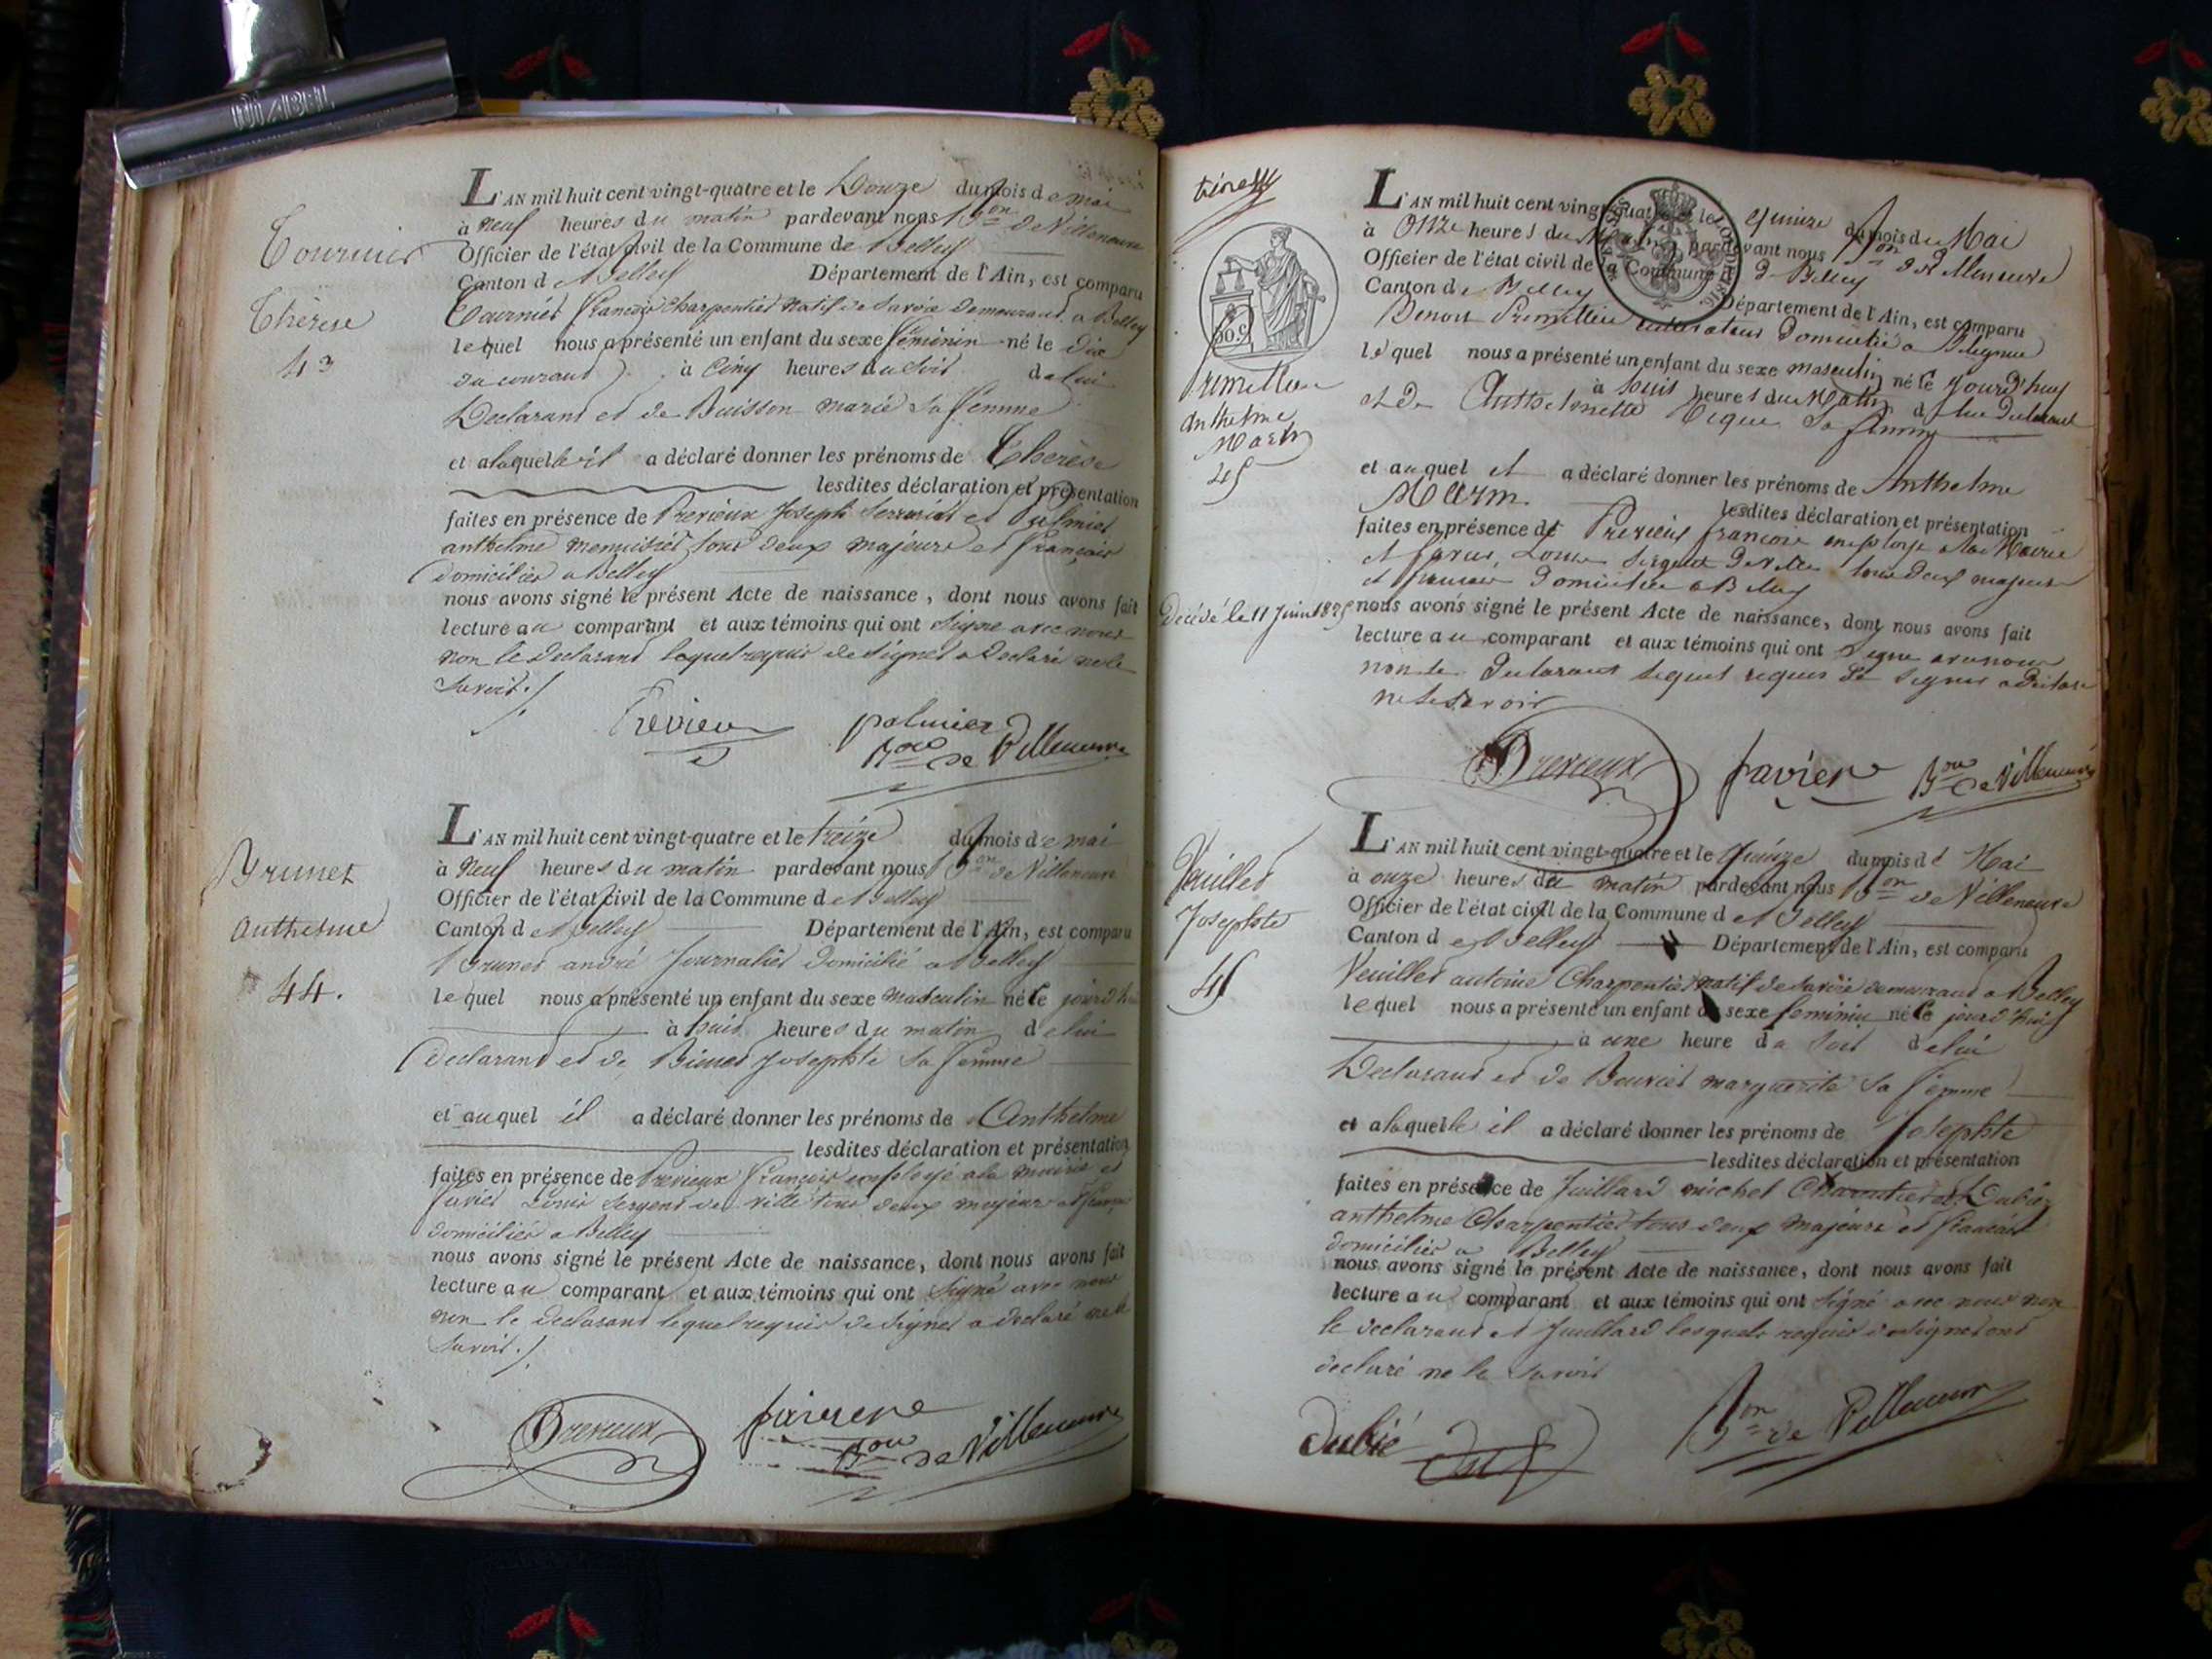 DIABEL
Tournier
Thérèse
43
L'AN mil huit cent vingt-quatre et le Douze du mois de mai
à neuf heures du matin pardevant nous Bon de Villeneuve
Officier de l'état civil de la Commune de Belley
Canton de Belley Département de l'Ain, est comparu
Tournier françois charpentier natif de Savoie demeurant a Belley
lequel nous a présenté un enfant du sexe féminin né le dix
du courant à cinq heures du soir de lui
Déclarant et de Buisson marie sa femme
et a laquelle il a déclaré donner les prénoms de Thérèse
lesdites déclaration et présentation
faites en présence de Previeux Joseph Serrurier et Palmier
anthelme menuisier tous deux majeurs et français
domiciliés a Belley
nous avons signé le présent Acte de naissance, dont nous avons fait
lecture au comparant et aux témoins qui ont signé avec nous
non le Declarant lequel requis de signer a Declaré ne le
savoir./
Previeux palmier
Bon de Villeneuve
Brunet
Anthelme
44.
L'AN mil huit cent vingt-quatre et le treize du mois de mai
à neuf heures du matin pardevant nous Bon de Villeneuve
Officier de l'état civil de la Commune de Belley
Canton de Belley Département de l'Ain, est comparu
Brunet andré Journalier domicilié a Belley
lequel nous a présenté un enfant du sexe masculin né le jourd'hui
à huit heures du matin de lui
Déclarant et de Josephte sa femme
et auquel il a déclaré donner les prénoms de Anthelme
lesdites déclaration et présentation
faites en présence de Previeux françois employé a la mairie et
favier Louis Sergent de ville tous deux majeurs et français
domiciliés a Belley
nous avons signé le présent Acte de naissance, dont nous avons fait
lecture au comparant et aux témoins qui ont signé avec nous
non le declarant lequel requis de signer a declaré ne le
savoir./
Previeux faviere
Bon de Villeneuve
30 c
Primillieu
anthelme
Marin
45
Décédé le 11 Juin 1825
L'AN mil huit cent vingt-quatre et le quinze du mois de Mai
à Onze heures du Matin pardevant nous Bon de Villeneuve
Officier de l'état civil de la Commune de Belley
Canton de Belley Département de l'Ain, est comparu
Benoit Primillieu cultivateur Domicilié a
lequel nous a présenté un enfant du sexe masculin né le jourd'huy
à huit heures du Matin de lui Declarant
et de sa femme
et auquel il a déclaré donner les prénoms de Anthelme
Marin. lesdites déclaration et présentation
faites en présence de Previeux francois employé a la Mairie
et favier Louis Sergent de ville tous deux majeurs
et francais Domiciliés a Belley
nous avons signé le présent Acte de naissance, dont nous avons fait
lecture au comparant et aux témoins qui ont signé avec nous
non le Declarant lequel requis de signer a Déclaré
ne le savoir
Previeux favier Bon de Villeneuve
Veuillet
Josephte
46
L'AN mil huit cent vingt-quatre et le quinze du mois de Mai
à onze heures du matin pardevant nous Bon de Villeneuve
Officier de l'état civil de la Commune de Belley
Canton de Belley Département de l'Ain, est comparu
Veuillet antoine Charpentier natif de Savoie demeurant a Belley
lequel nous a présenté un enfant du sexe feminin né le jourd'hui
à une heure du soir de lui
Declarant et de Bouvier marguerite sa femme
et a laquelle il a déclaré donner les prénoms de Josephte
lesdites déclaration et présentation
faites en présence de Juillard michel et Dubié
anthelme Charpentier tous deux majeurs et francais
domiciliés a Belley
nous avons signé le présent Acte de naissance, dont nous avons fait
lecture au comparant et aux témoins qui ont signé avec nous non
le declarant et Juillard lesquels requis de signer ont
declaré ne le savoir
dubié Bon de Villeneuve